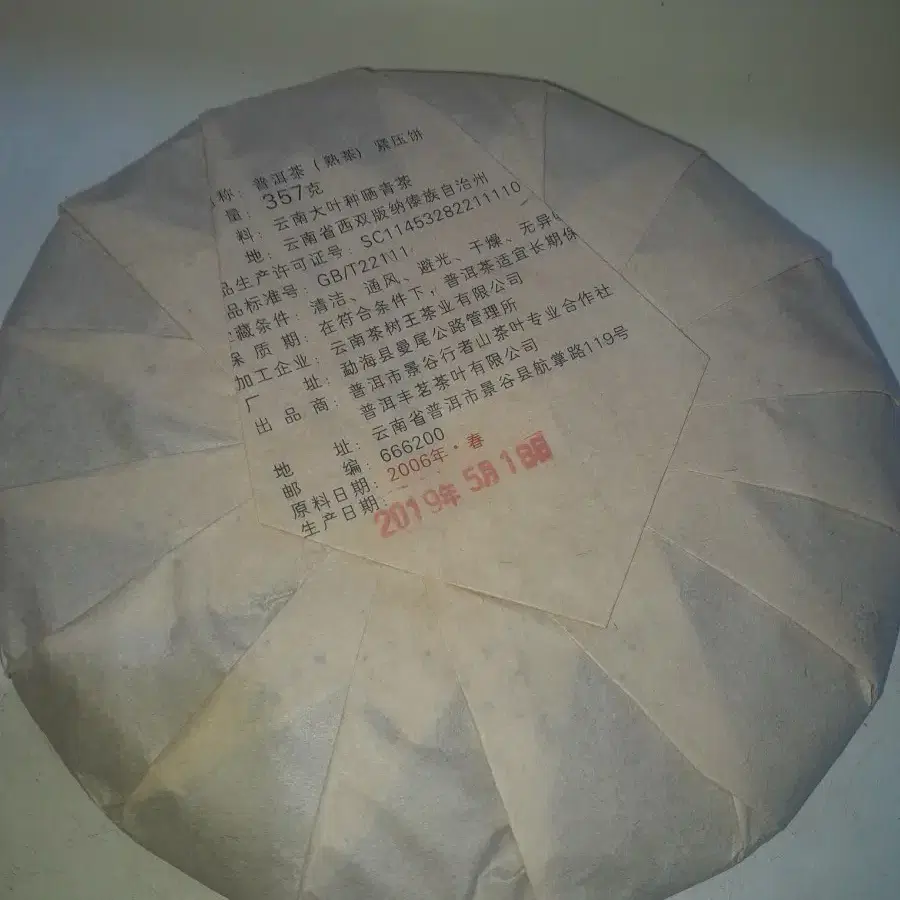 称：普洱茶（熟茶）紧压饼
量：357克
料：云南大叶种晒青茶
地：云南省西双版纳傣族自治州
品生产许可证号：SC11453282211110
品标准号：GB/T22111
藏条件：清洁、通风、避光、干燥、无异
保质期：在符合条件下，普洱茶适宜长期保
加工企业：云南茶树王茶业有限公司
厂址：勐海县曼尾公路管理所
出品商：普洱市景谷行者山茶叶专业合作社
普洱丰茗茶叶有限公司
地址：云南省普洱市景谷县航掌路119号
邮编：666200
原料日期：2006年·春
生产日期：2019年5月18日